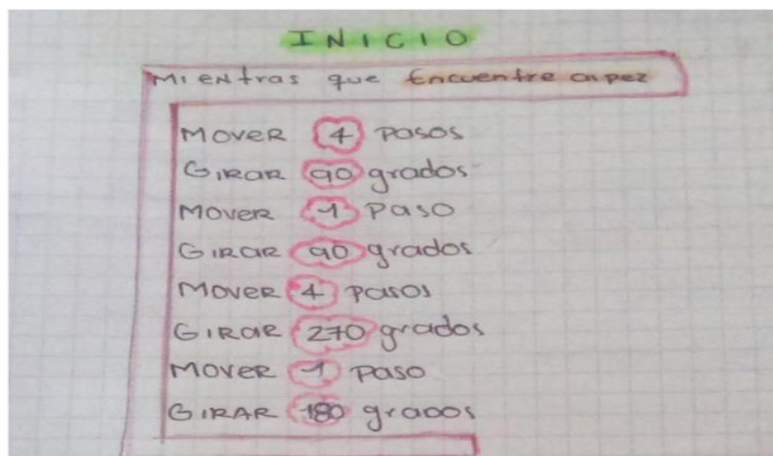 INICIO
Mientras que Encuentre al pez
MOVER 4 PASOS
GIRAR 90 grados
MOVER 1 PASO
GIRAR 90 grados
MOVER 4 PASOS
GIRAR 270 grados
MOVER 1 PASO
GIRAR 180 grados